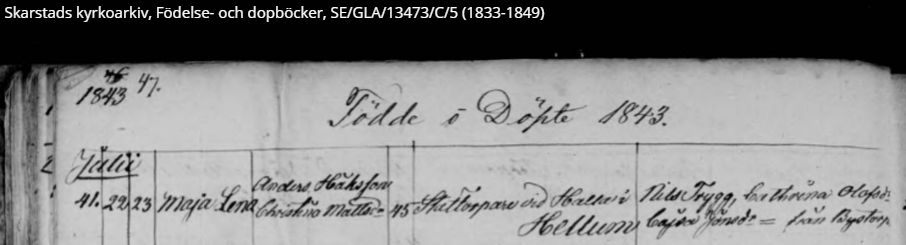 Skarstads kyrkoarkiv, Födelse- och dopböcker, SE/GLA/13473/C/5 (1833-1849)
46 47.
1843
Födde o Döpte 1843.
Julii
Anders Håksson Nils Trygg, Cathrina Olofsd:
41. 22 23 Maja Lena Christina Matts:d 45 Stattorpare vid i Cajsa Jönsd:r = från Bystorp
Hellum